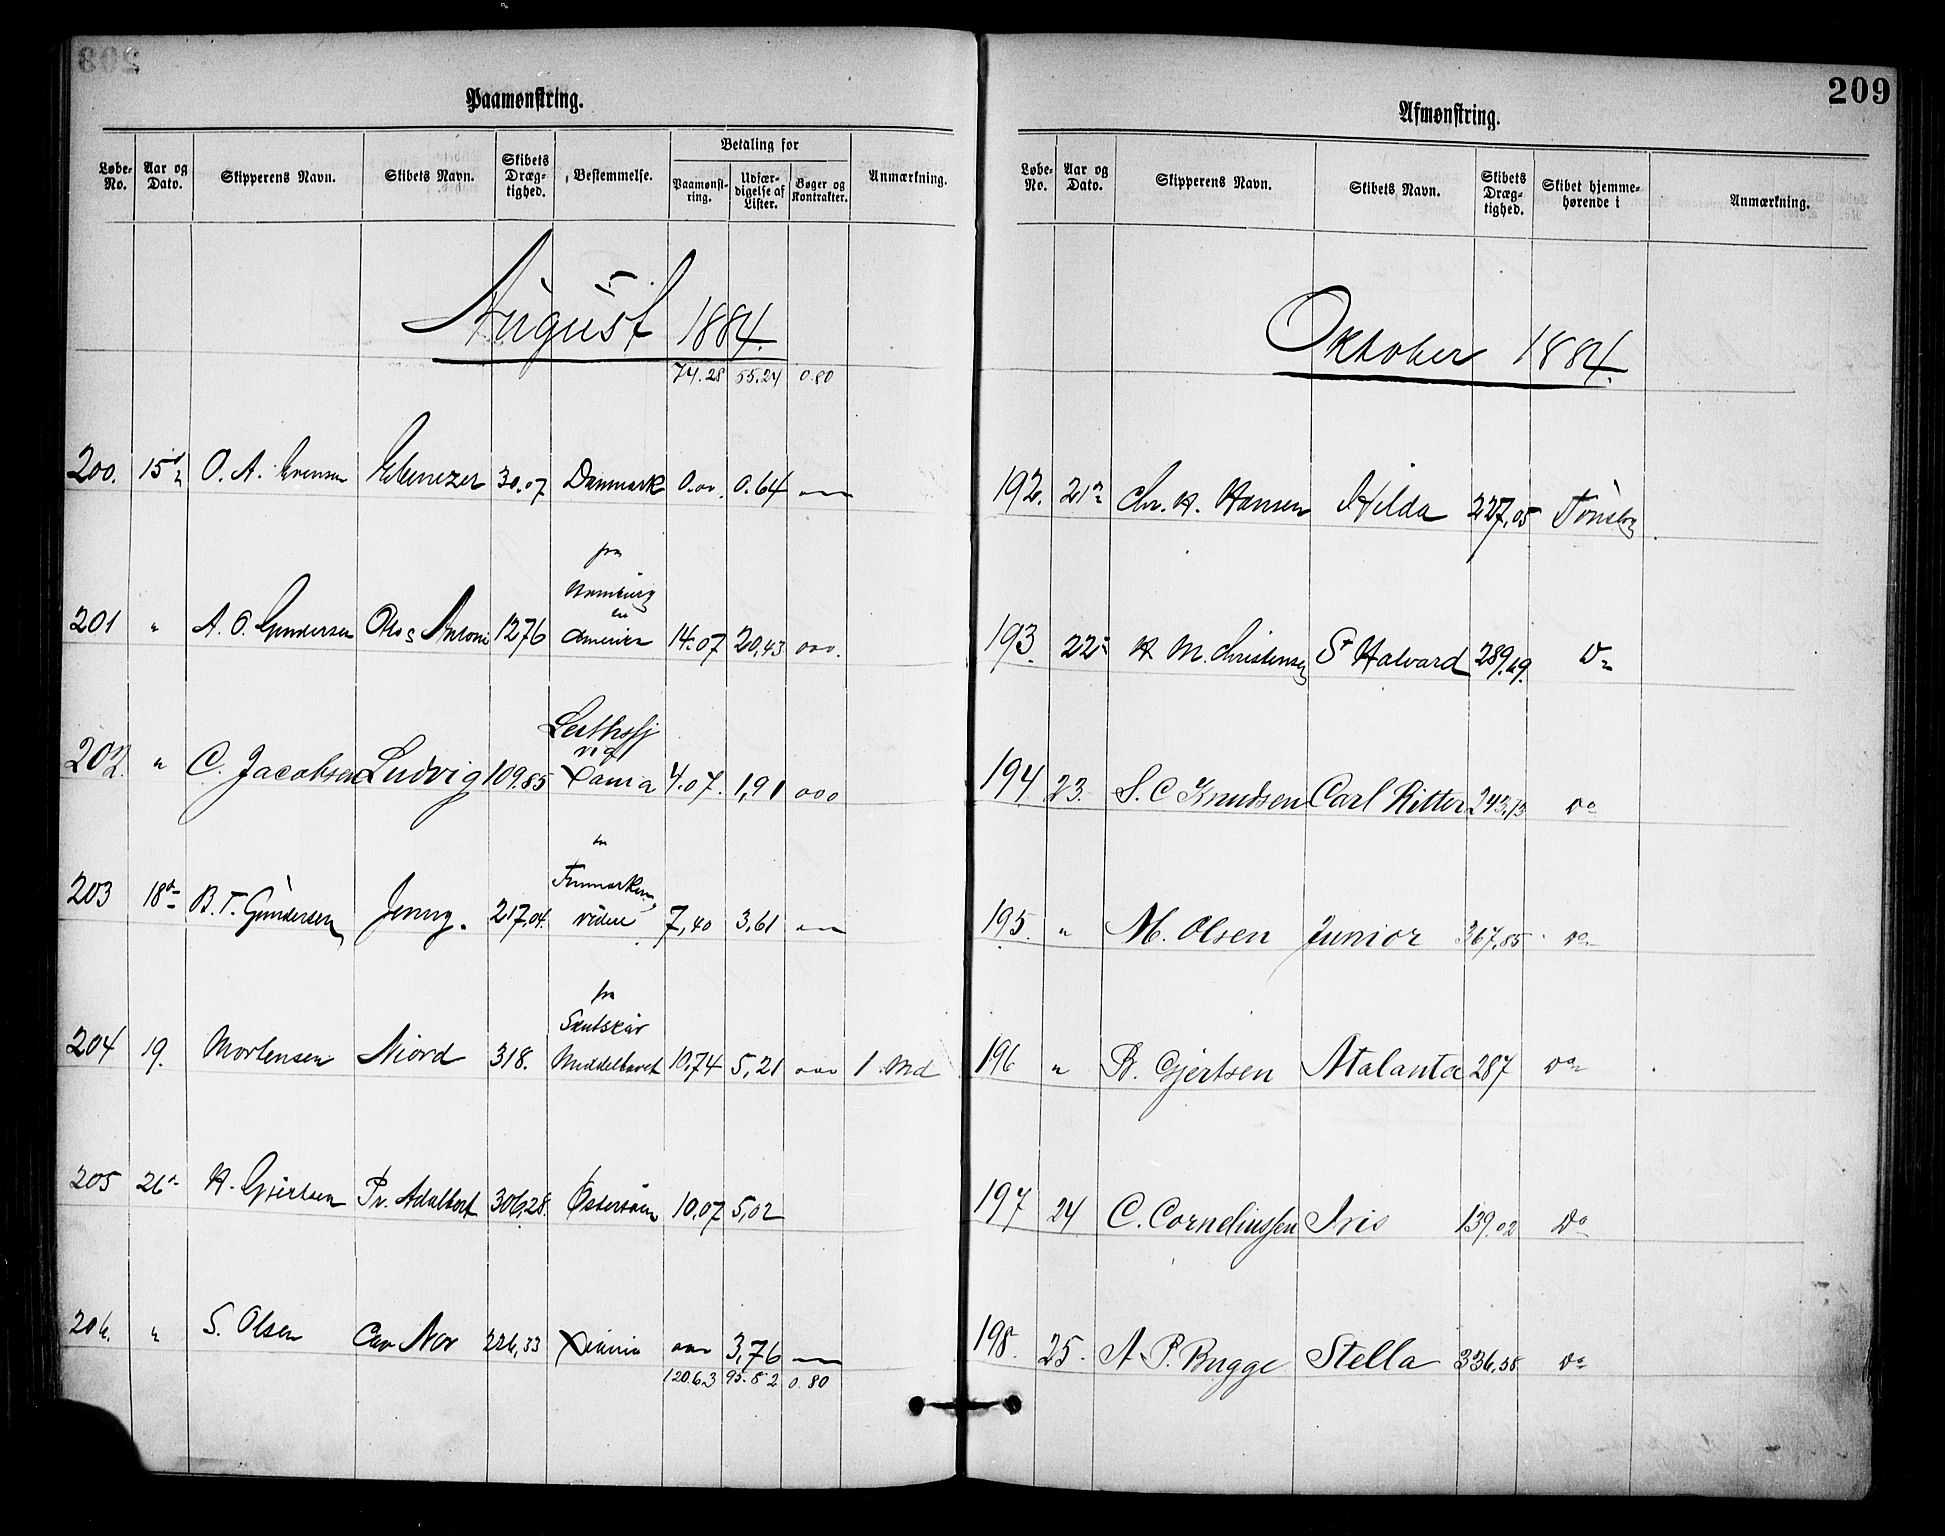 Paamønstring.
Løbe-No. Aar og Dato. Skipperens Navn. Skibets Navn. Skibets Dræg-tighed. Bestemmelse. Betaling for Paamønst-ring. Udfær-digelse af Lister. Bøger og Kontrakter. Anmærkning.
August 1884.
74.28 55.24 0.80
200. 15 O. A. Evensen Ebenezer 30.07 Danmark 0.00 0.64
fra
Hamburg
til
201 " A. O. Gundersen Otto & Antonie 1276 America 14.07 20,43 000.
Leithsfj
via
202. " C. Jacobsen Ludvig 109.85 Xania 4.07. 1,91 000
Finmarken,
203 18 B. T. Gundersen Jenny. 217,04. videre 7,40 3,61
fra
Skutskär
204 19. Mortensen Niord 318. Middelhavet 10,74 5,21 1 Md
205 26 H. Gjertsen Pr. Adalbert 306,28. Østersøen 10.07 5,02
206. " S. Olsen Nor 226,33 Xiania 3,76
120.63 95.82 0.80
209
Afmønstring.
Løbe-No. Aar og Dato. Skipperens Navn. Skibets Navn. Skibets Dræg-tighed. Skibet hjemme-hørende i Anmærkning.
Oktober 1884.
192. 21 Chr. H. Hansen Hilda 227,05 Tønsbg
193. 22 H M. Christensen St Halvard 289,69. Do
194 23. S. C Knudsen Carl Ritter 243,13 Do
195. " M. Olsen Junior 367,85 Do
196 " B. Gjertsen Atalanta 287 Do
197 24 C. Corneliussen Iris 139.02 Do
198. 25. A P. Bugge Stella 336,58 Do